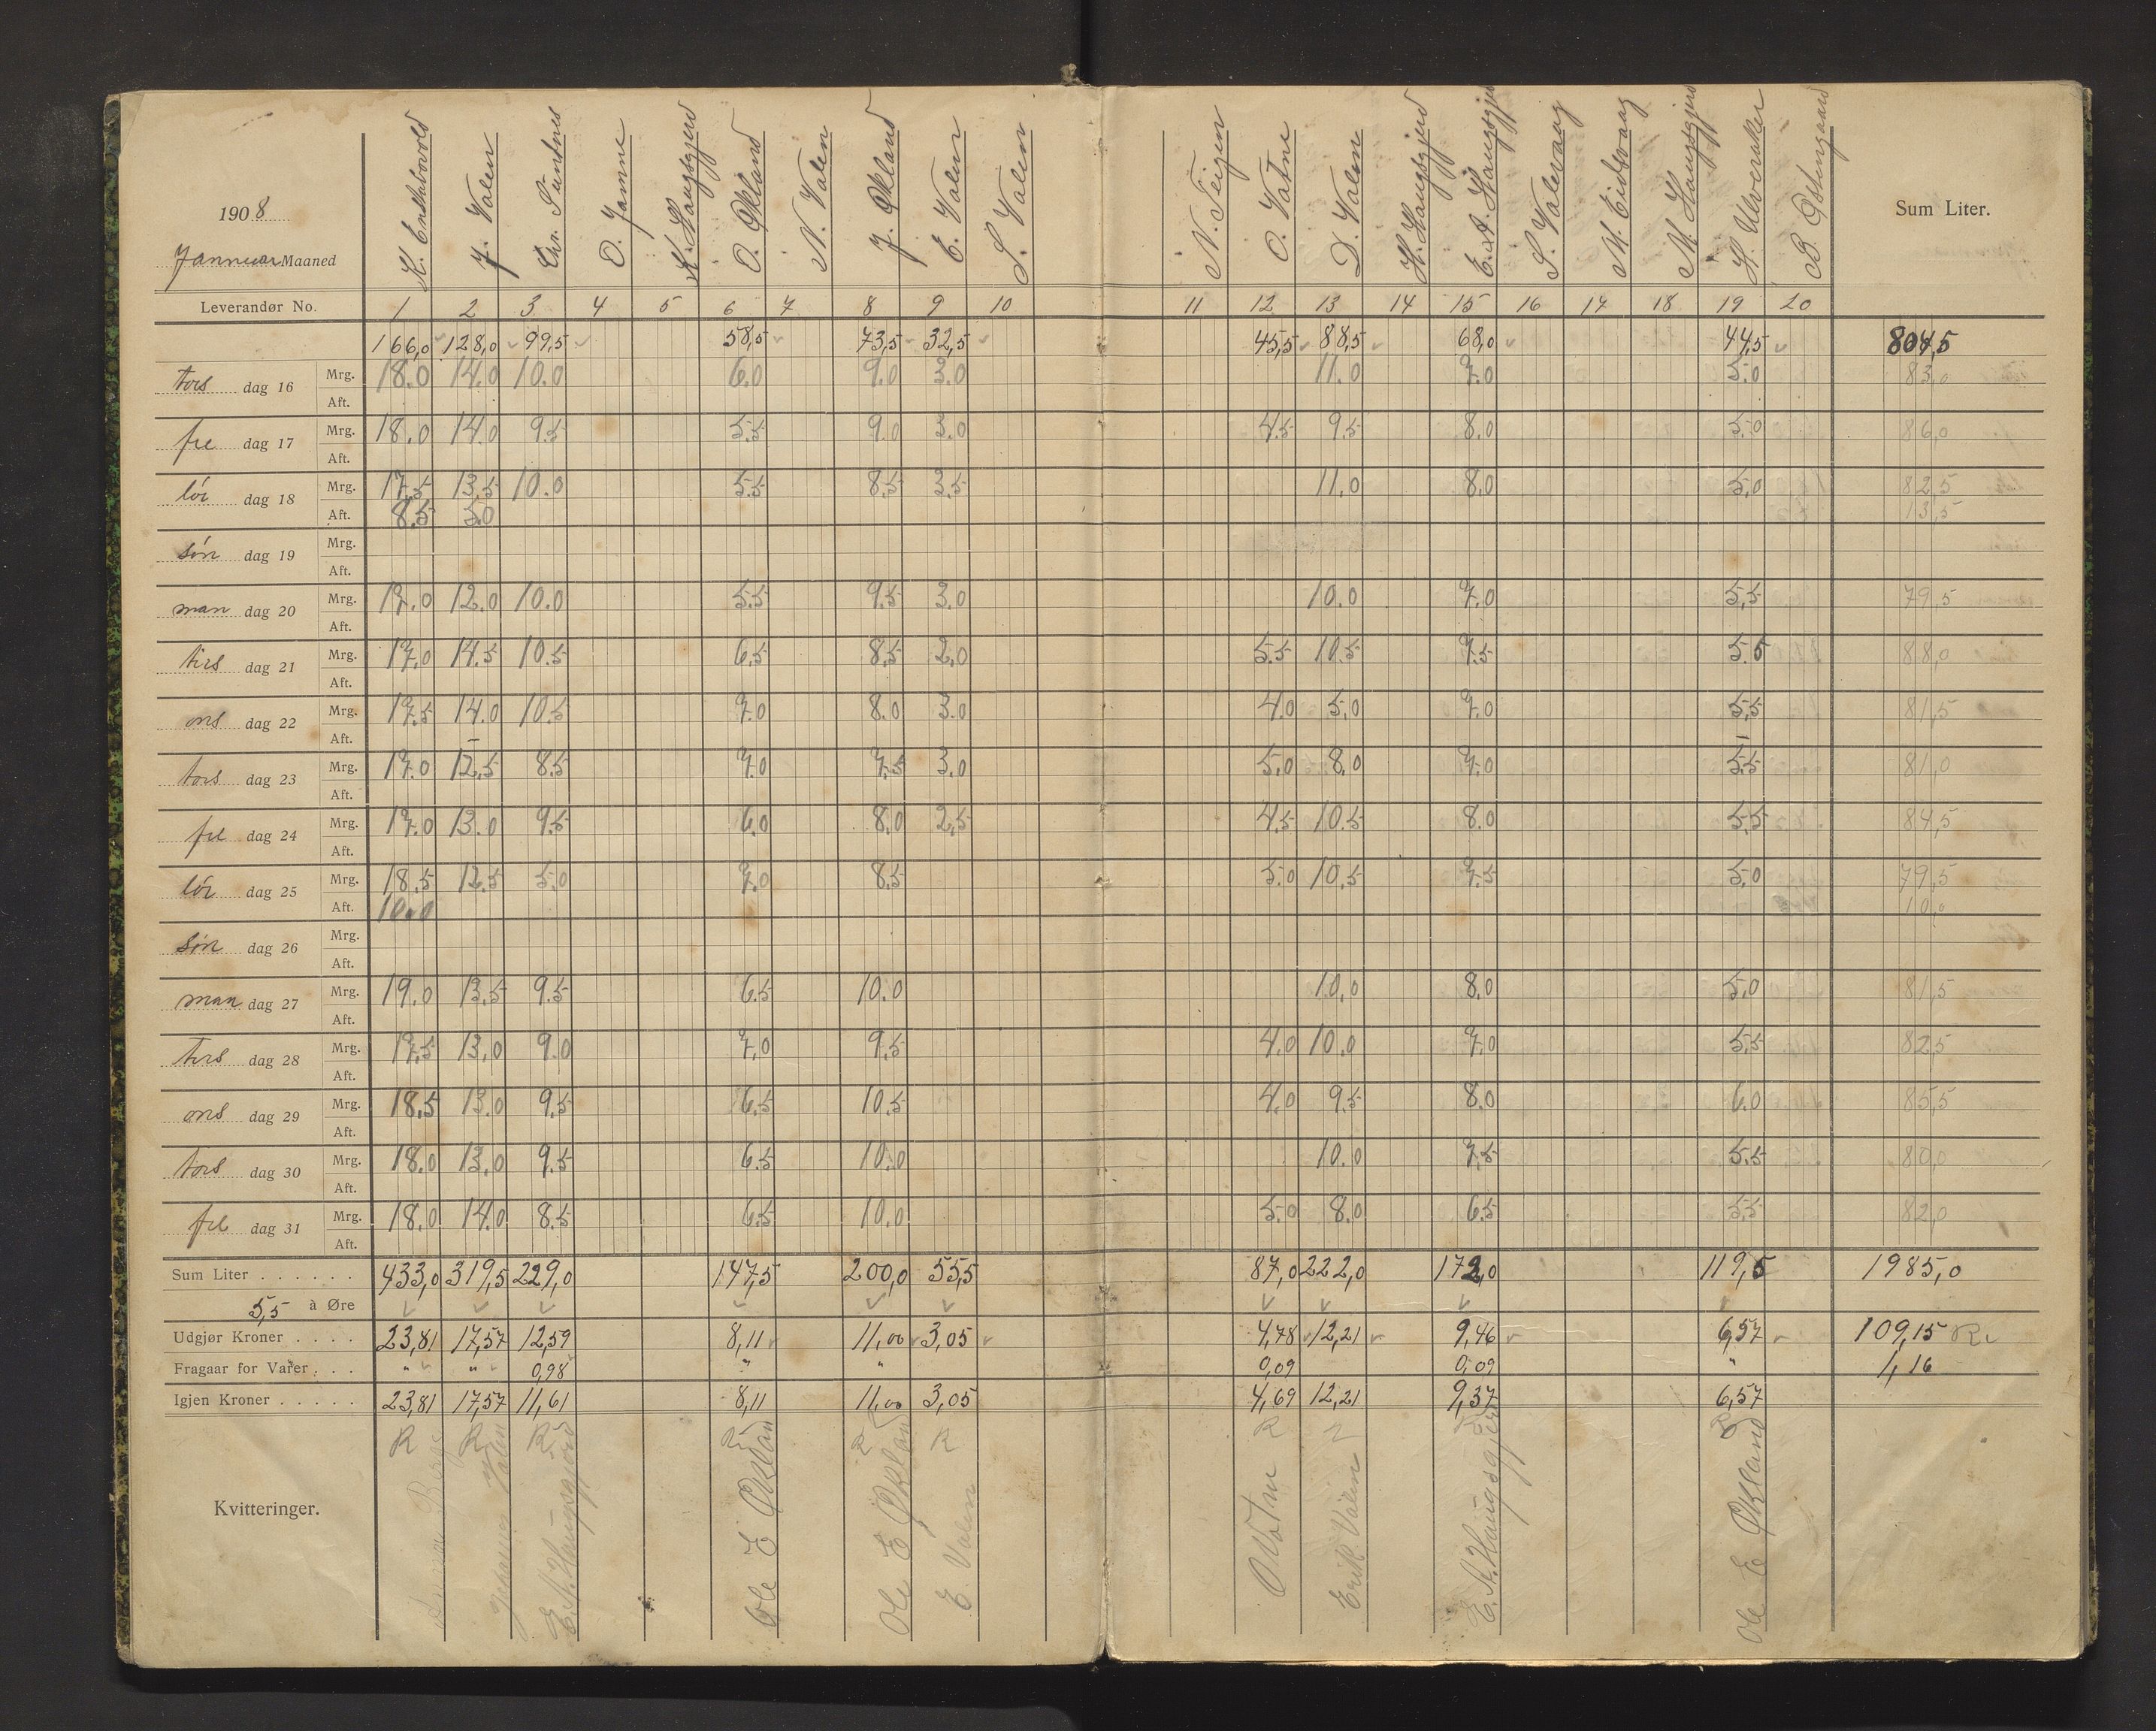 1908
Januar Maaned
K. Enstabovold J. Valen Chr. Suntnes O. Jamne K. Haugsgjerd O. Økland N. Valen J. Økland E. Valen S. Valen N. Teigen O. Vatne D. Valen H. Haugsgjerd E. A. Haugsgjerd S. Valevaag M. Eidsvaag M. Haugsgjerd H. Ulveraker B. Østengaard Sum Liter.
Leverandør No. 1 2 3 4 5 6 7 8 9 10 11 12 13 14 15 16 17 18 19 20
166,0 128,0 99,5 58,5 73,5 32,5 45,5 88,5 68,0 44,5 804,5
tors dag 16 Mrg. 18.0 14.0 10.0 6.0 9.0 3.0 11.0 7.0 5.0 83,0
Aft.
fre dag 17 Mrg. 18.0 14.0 9.5 5.5 9.0 3.0 4.5 9.5 8.0 5.0 86,0
Aft.
lör dag 18 Mrg. 17.5 13.5 10.0 5.5 8.5 3.5 11.0 8.0 5.0 82,5
Aft. 8.5 5.0 13,5
sön dag 19 Mrg.
Aft.
man dag 20 Mrg. 17.0 12.0 10.0 5.5 9.5 3.0 10.0 7.0 5.5 79,5
Aft.
tirs dag 21 Mrg. 17.0 14.5 10.5 6.5 8.5 2.0 5.5 10.5 7.5 5.5 88,0
Aft.
ons dag 22 Mrg. 17.5 14.0 10.5 7.0 8.0 3.0 4.0 5.0 7.0 5.5 81,5
Aft.
tors dag 23 Mrg. 17.0 12.5 8.5 7.0 7.5 3.0 5.0 8.0 7.0 5.5 81,0
Aft.
fre dag 24 Mrg. 17.0 13.0 9.5 6.0 8.0 2.5 4.5 10.5 8.0 5.5 84,5
Aft.
lör dag 25 Mrg. 18.5 12.5 5.0 7.0 8.5 5.0 10.5 7.5 5.0 79,5
Aft. 10.0 10,0
sön dag 26 Mrg.
Aft.
man dag 27 Mrg. 19.0 13.5 9.5 6.5 10.0 10.0 8.0 5.0 81,5
Aft.
tirs dag 28 Mrg. 17.5 13.0 9.0 7.0 9.5 4.0 10.0 7.0 5.5 82,5
Aft.
ons dag 29 Mrg. 18.5 13.0 9.5 6.5 10.5 4.0 9.5 8.0 6.0 85,5
Aft.
tors dag 30 Mrg. 18.0 13.0 9.5 6.5 10.0 10.0 7.5 5.5 80,0
Aft.
fre dag 31 Mrg. 18.0 14.0 8.5 6.5 10.0 5.0 8.0 6.5 5.5 82,0
Aft.
Sum Liter . . . . . . 433,0 319,5 229,0 147,5 200,0 55,5 87,0 222,0 172,0 119,5 1985,0
5,5 à Øre
Udgjør Kroner . . . . 23,81 17,57 12,59 8,11 11,00 3,05 4,78 12,21 9,46 6,57 109,15
Fragaar for Varer . . . " " 0,98 " " 0,09 0,09 " 1,16
Igjen Kroner . . . . . 23,81 17,57 11,61 8,11 11,00 3,05 4,69 12,21 9,37 6,57
R R R R R R R
Kvitteringer. Johannes Valen E. A. Haugsgjerd Ole E Økland Ole E Økland E. Valen O Vatne Erik Valen E. A. Haugsgjerd Ole E Økland